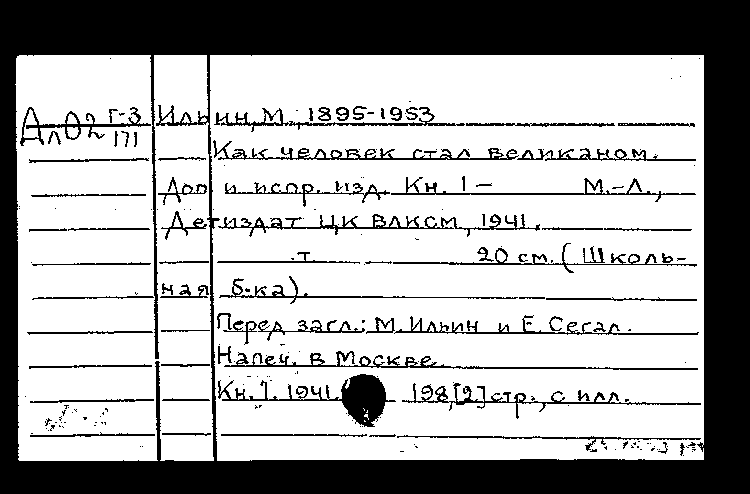 Ал02 Г-3/171 Ильин, М., 1895-1953
Как человек стал великаном.
Доп и испр. изд. Кн. 1 – М.-Л.,
Детиздат ЦК ВЛКСМ, 1941.
т. 20 см. (Школь-
ная б-ка).
Перед загл.: М. Ильин и Е. Сегал.
Напеч. в Москве.
Кн. 1. 1941. 198,[2] стр., с илл.